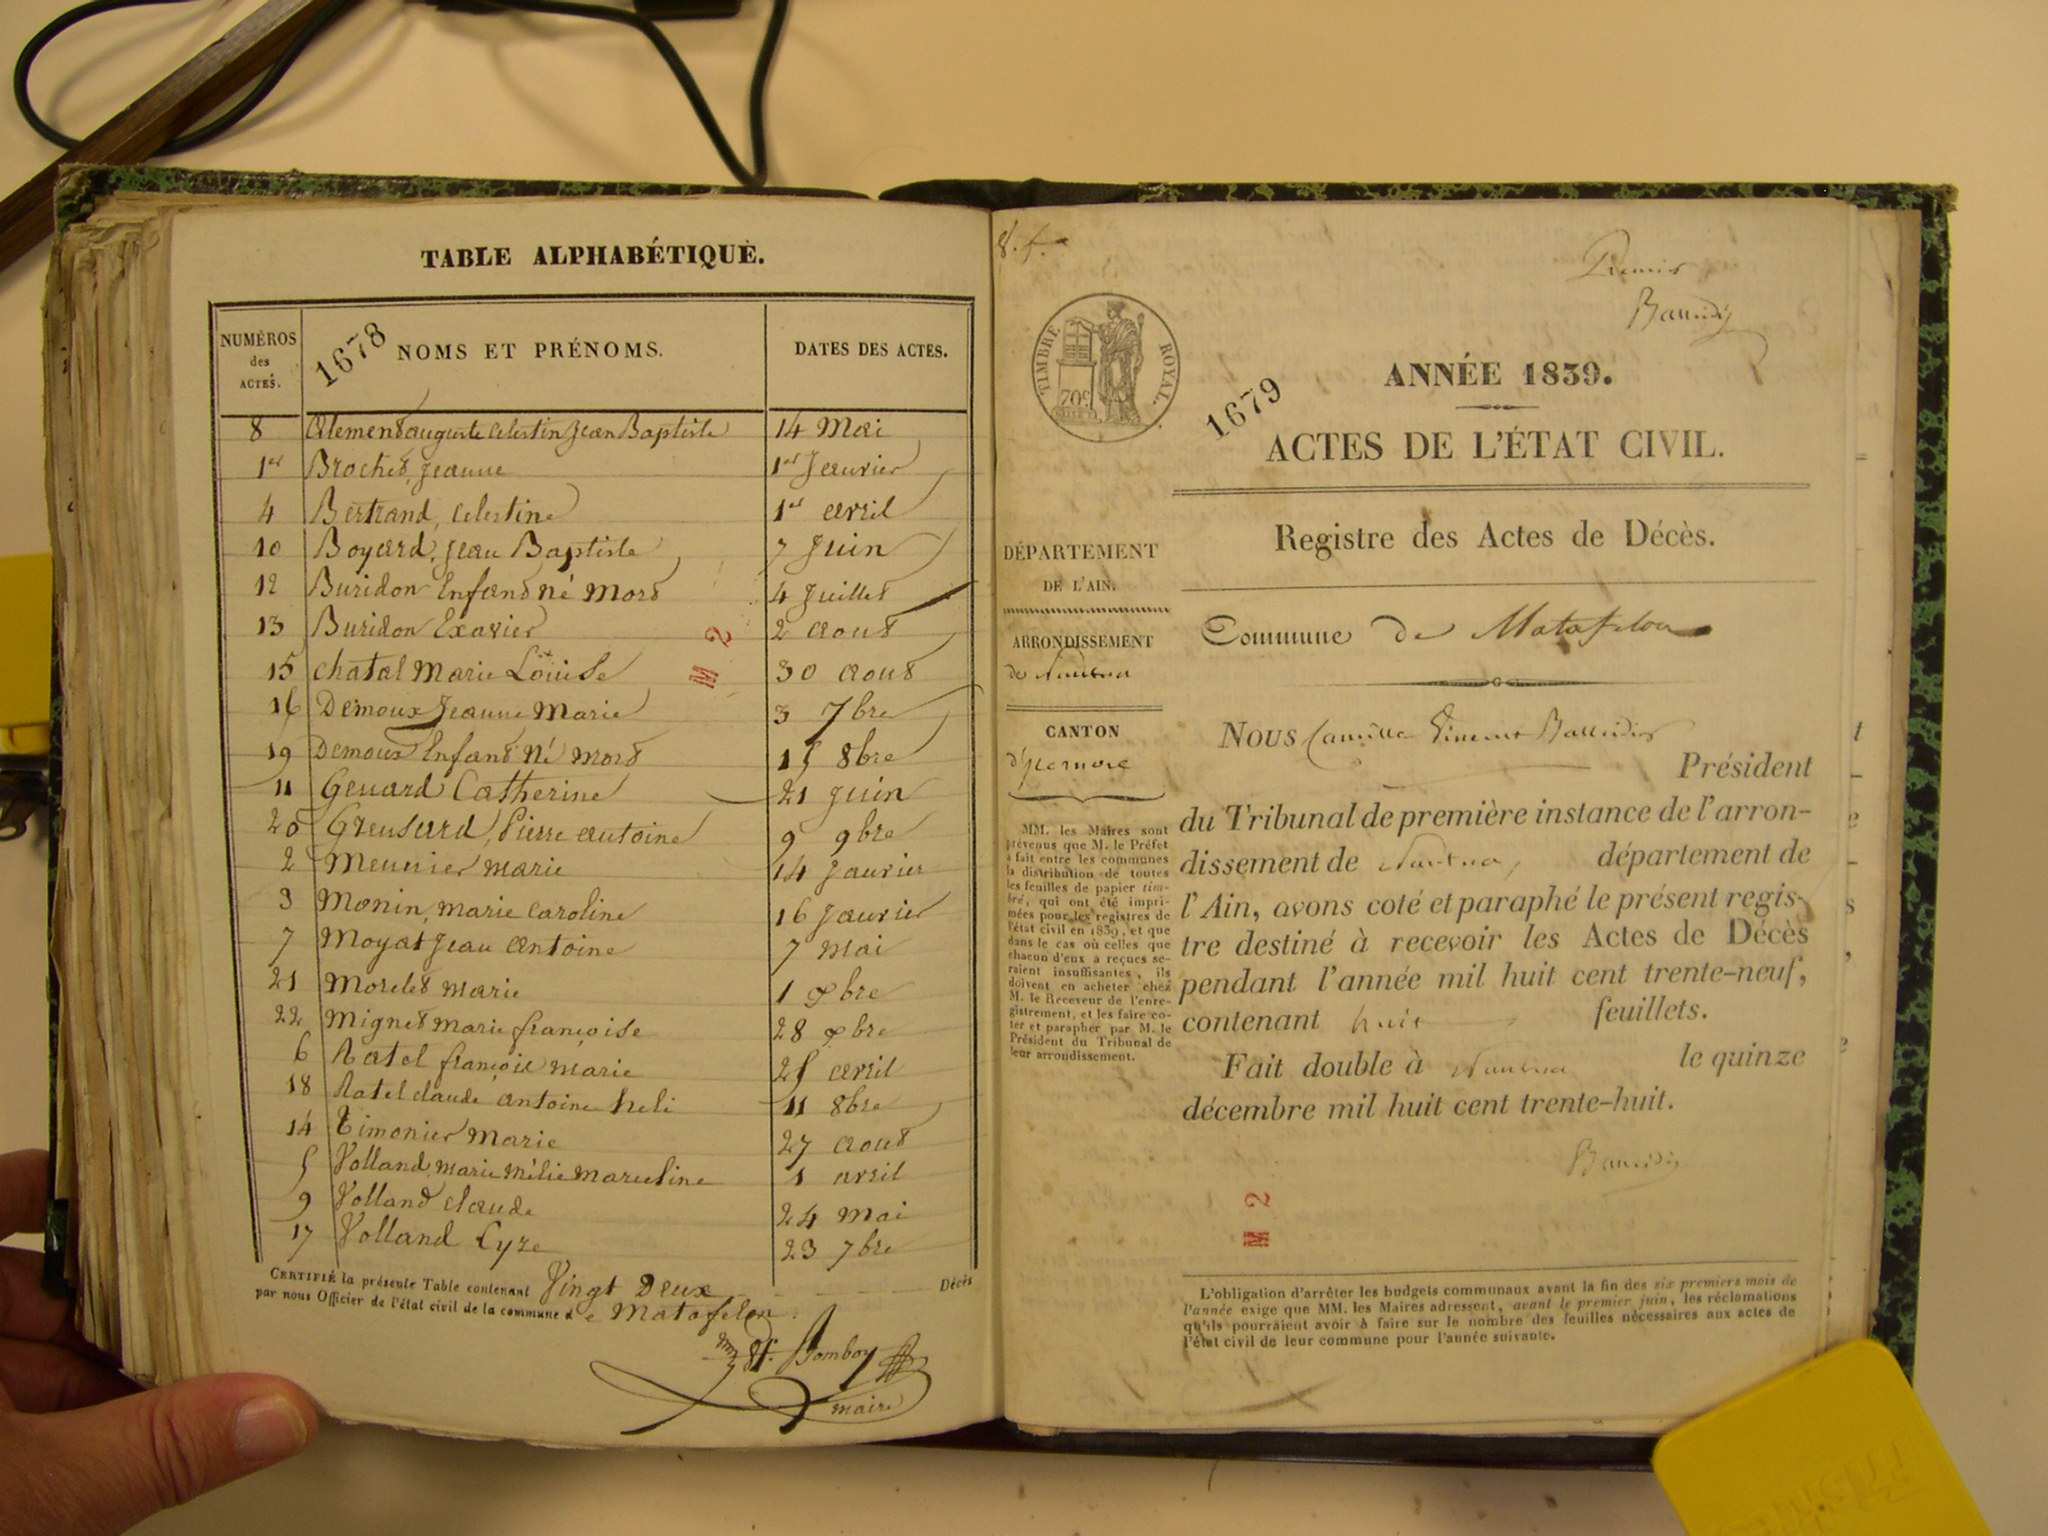 TABLE ALPHABÉTIQUE.
NUMÉROS
des
ACTES.
1678
NOMS ET PRÉNOMS.
DATES DES ACTES.
8 Clement auguste Celestin Jean Baptiste 14 Mai
1er Brochet, Jeanne 1er Janvier
4 Bertrand, Celestine 1er avril
10 Boyard, Jean Baptiste 7 Juin
12 Buridon Enfant né Mort 4 Juillet
13 Buridon Exavier 2 aout
15 Chatal Marie Louise 30 aout
16 Demoux Jeanne Marie 3 7bre
19 Demoux Enfant Né Mort 15 8bre
11 Genard Catherine 21 Juin
20 Greusard, Pierre antoine 9 9bre
2 Meunier marie 14 Janvier
3 Monin, marie Caroline 16 Janvier
7 Moyat Jean antoine 7 mai
21 Morelet marie 1 xbre
22 Mignet marie françoise 28 xbre
6 Ratel françoise marie 25 avril
18 Ratel claude antoine heli 11 8bre
14 Timonier Marie 27 aout
5 Volland marie Mélie Marceline 1 avril
9 Volland claude 24 mai
17 Volland Lyze 23 7bre
CERTIFIÉ la présente Table contenant Vingt Deux Décès
par nous Officier de l'état civil de la commune de Matafelon.
Bomboy
maire
M 2
8. f.
TIMBRE ROYAL.
70c
1679
ANNÉE 1839.
ACTES DE L'ÉTAT CIVIL.
Registre des Actes de Décès.
DÉPARTEMENT
DE L'AIN.
Commune de Matafelon
ARRONDISSEMENT
de Nantua
CANTON
d'Izernore
MM. les Maires sont
prévenus que M. le Préfet
a fait entre les communes
la distribution de toutes
les feuilles de papier tim-
bré, qui ont été impri-
mées pour les registres de
l'état civil en 1839, et que
dans le cas où celles que
chacun d'eux a reçues se-
raient insuffisantes, ils
doivent en acheter chez
M. le Receveur de l'enre-
gistrement, et les faire co-
ter et parapher par M. le
Président du Tribunal de
leur arrondissement.
Nous Camille Vincent
Président
du Tribunal de première instance de l'arron-
dissement de Nantua, département de
l'Ain, avons coté et paraphé le présent regis-
tre destiné à recevoir les Actes de Décès
pendant l'année mil huit cent trente-neuf,
contenant huit feuillets.
Fait double à Nantua le quinze
décembre mil huit cent trente-huit.
M 2
L'obligation d'arrêter les budgets communaux avant la fin des six premiers mois de
l'année exige que MM. les Maires adressent, avant le premier juin, les réclamations
qu'ils pourraient avoir à faire sur le nombre des feuilles nécessaires aux actes de
l'état civil de leur commune pour l'année suivante.